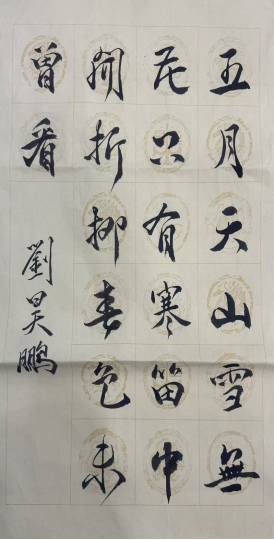 五月天山雪無
花只有寒笛中
聞折柳春色未
曾看
劉昊鵬